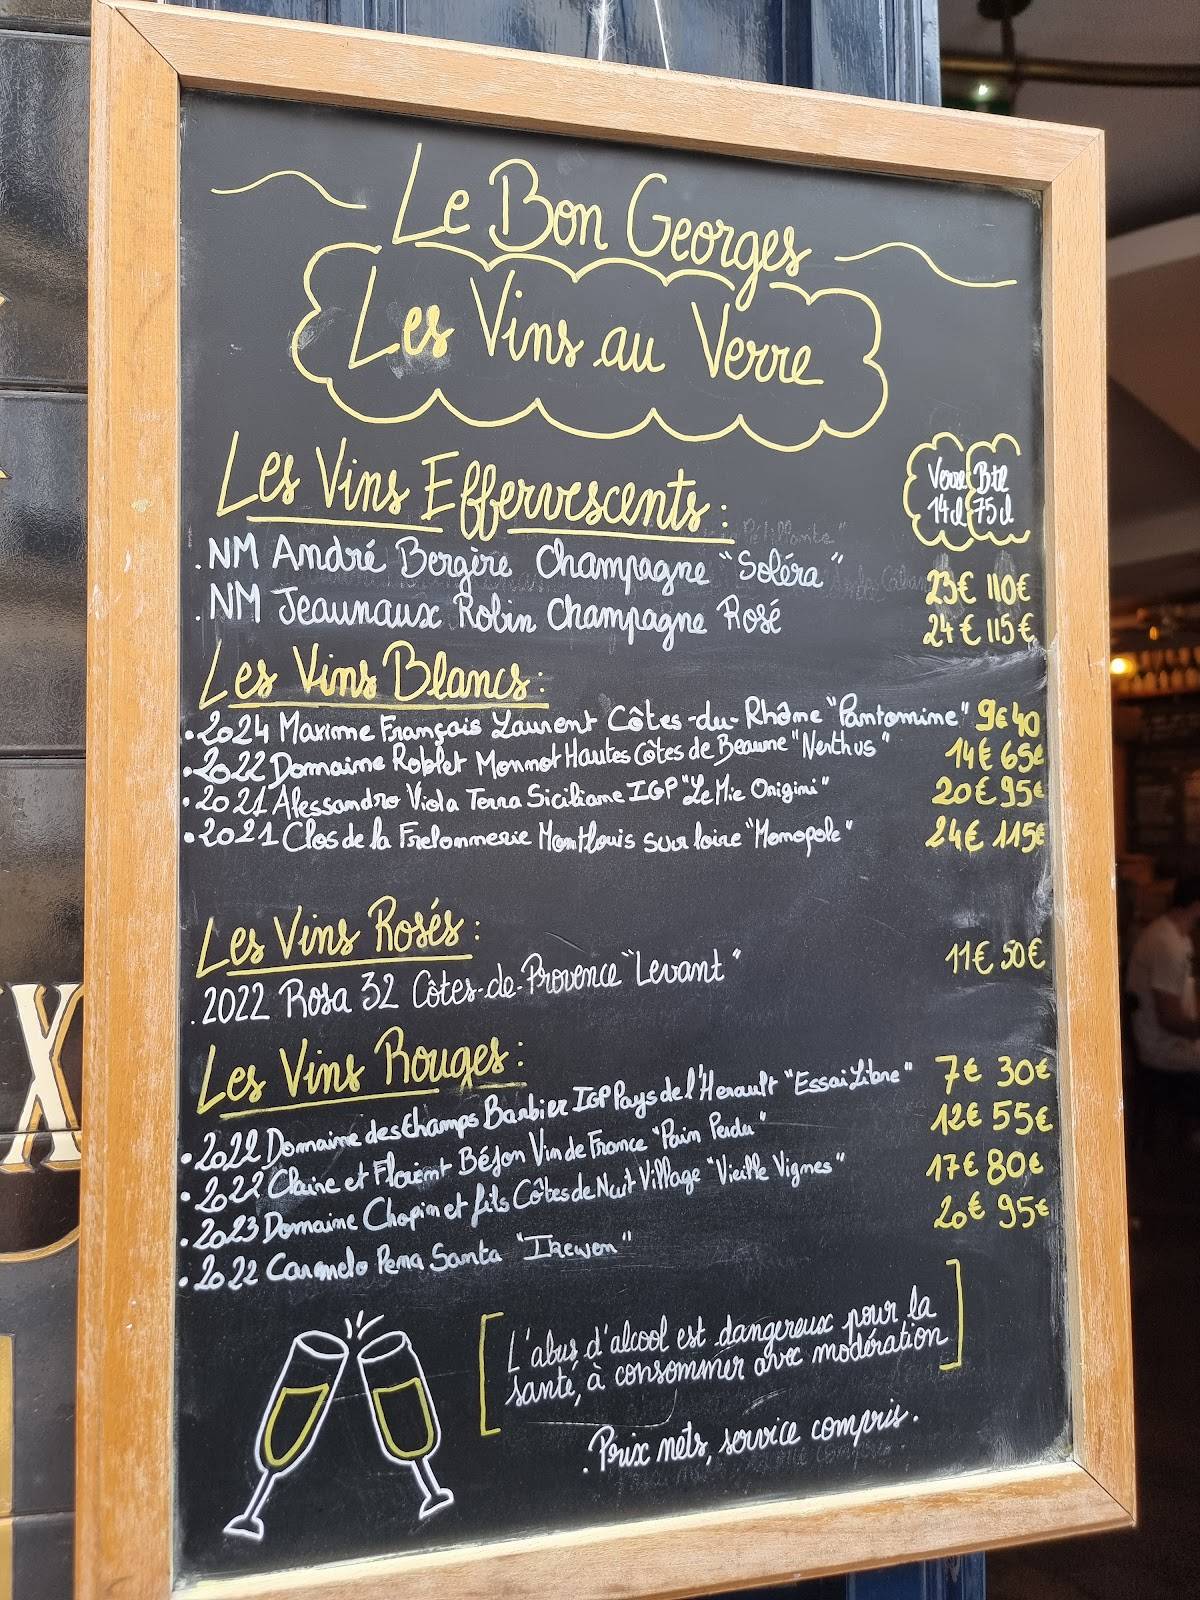 Le Bon Georges
Les Vins au Verre
Verre Btl
14cl 75cl
Les Vins Effervescents :
. NM André Bergère Champagne "Soléra" 23€ 110€
. NM Jeaunaux Robin Champagne Rosé 24€ 115€
Les Vins Blancs :
• 2024 Maxime François Laurent Côtes-du-Rhône "Pantomine" 9€ 40
• 2022 Domaine Roblet Monnot Hautes Côtes de Beaune "Nerthus" 14€ 65€
• 2021 Alessandro Viola Terra Siciliane IGP "Le Mie Origini" 20€ 95€
• 2021 Clos de la Frelonnerie Montlouis sur loire "Monopole" 24€ 115€
Les Vins Rosés :
. 2022 Rosa 32 Côtes-de-Provence "Levant" 11€ 50€
Les Vins Rouges :
• 2022 Domaine des Champs Barbier IGP Pays de l'Herault "Essai Libre" 7€ 30€
• 2022 Claire et Florent Béjon Vin de France "Pain Perdu" 12€ 55€
• 2023 Domaine Chopin et fils Côtes de Nuit Village "Vieille Vignes" 17€ 80€
• 2022 Carmelo Pena Santa "Ikewen" 20€ 95€
[L'abus d'alcool est dangereux pour la
santé, à consommer avec modération]
. Prix nets, service compris.
X